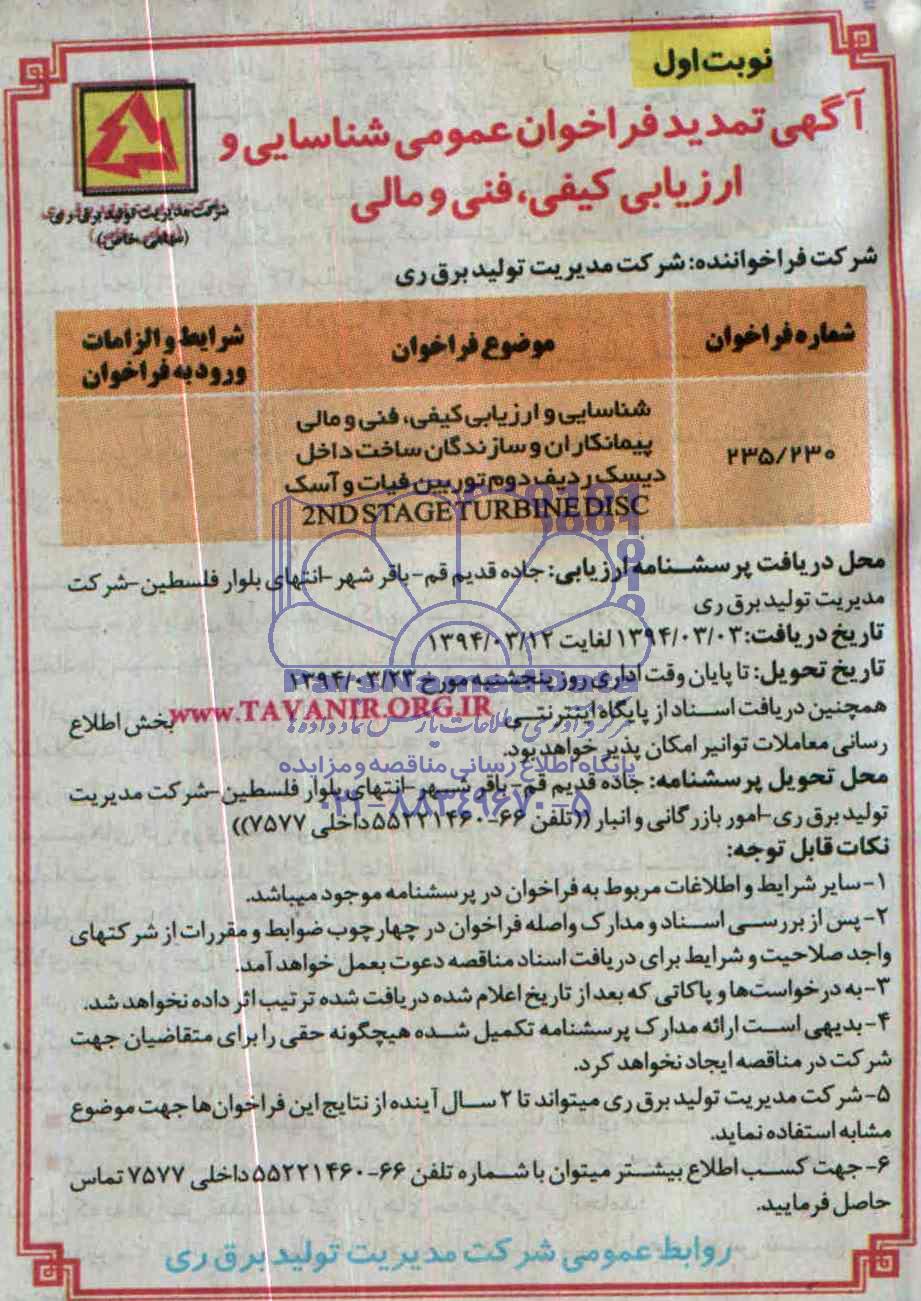 نوبت اول
آگهی تمدید فراخوان عمومی شناسایی و
ارزیابی کیفی، فنی و مالی
شرکت مدیریت تولید برق ری
(سهامی خاص)
شرکت فراخواننده: شرکت مدیریت تولید برق ری
شماره فراخوان
موضوع فراخوان
شرایط و الزامات
ورود به فراخوان
۲۳۵/۲۳۰
شناسایی و ارزیابی کیفی، فنی و مالی
پیمانکاران و سازندگان ساخت داخل
دیسک ردیف دوم توربین فیات و آسک
2ND STAGE TURBINE DISC
محل دریافت پرسشنامه ارزیابی: جاده قدیم قم-باقر شهر-انتهای بلوار فلسطین-شرکت
مدیریت تولید برق ری
تاریخ دریافت: ۱۳۹۴/۰۳/۰۳ لغایت ۱۳۹۴/۰۳/۱۲
تاریخ تحویل: تا پایان وقت اداری روز پنجشنبه مورخ ۱۳۹۴/۰۳/۲۳
همچنین دریافت اسناد از پایگاه اینترنتی www.TAVANIR.ORG.IR بخش اطلاع
رسانی معاملات توانیر امکان پذیر خواهد بود.
محل تحویل پرسشنامه: جاده قدیم قم-باقر شهر-انتهای بلوار فلسطین-شرکت مدیریت
تولید برق ری-امور بازرگانی و انبار ((تلفن ۶۶-۵۵۲۲۱۴۶۰ داخلی ۷۵۷۷))
نکات قابل توجه:
۱-سایر شرایط و اطلاعات مربوط به فراخوان در پرسشنامه موجود میباشد.
۲-پس از بررسی اسناد و مدارک واصله فراخوان در چهارچوب ضوابط و مقررات از شرکتهای
واجد صلاحیت و شرایط برای دریافت اسناد مناقصه دعوت بعمل خواهد آمد.
۳-به درخواست‌ها و پاکاتی که بعد از تاریخ اعلام شده دریافت شده ترتیب اثر داده نخواهد شد.
۴-بدیهی است ارائه مدارک پرسشنامه تکمیل شده هیچگونه حقی را برای متقاضیان جهت
شرکت در مناقصه ایجاد نخواهد کرد.
۵-شرکت مدیریت تولید برق ری میتواند تا ۲ سال آینده از نتایج این فراخوان‌ها جهت موضوع
مشابه استفاده نماید.
۶-جهت کسب اطلاع بیشتر میتوان با شماره تلفن ۶۶-۵۵۲۲۱۴۶۰ داخلی ۷۵۷۷ تماس
حاصل فرمایید.
روابط عمومی شرکت مدیریت تولید برق ری
ParsNamadData
پایگاه اطلاع رسانی مناقصه و مزایده
۰۲۱-۸۸۳۴۹۶۷۰-۵